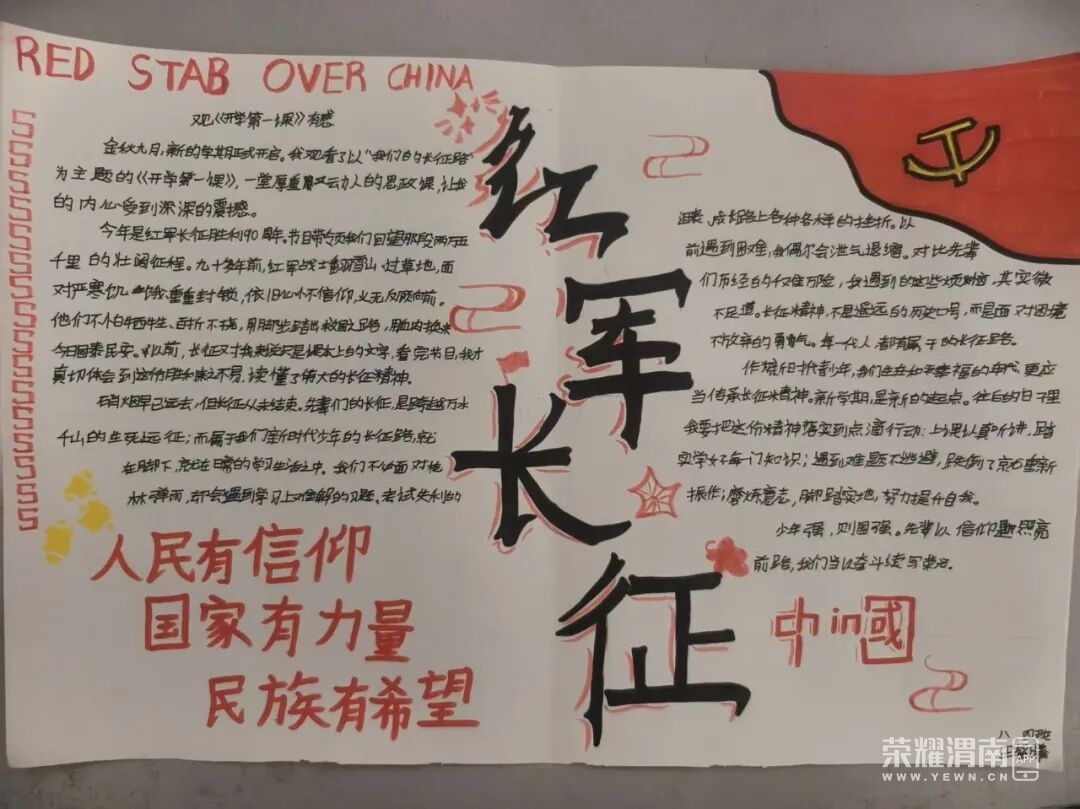 RED STAB OVER CHINA
观《开学第一课》有感
金秋九月,新的学期正式开启。我观看了以“我们的长征路”
为主题的《开学第一课》,一堂厚重又动人的思政课,让我
的内心受到深深的震撼。
今年是红军长征胜利90周年。节目带领我们回望那段两万五
千里的壮阔征程。九十多年前,红军战士翻雪山、过草地,面
对严寒饥饿、重重封锁,依旧心怀信仰,义无反顾向前。
他们不怕牺牲、百折不挠,用脚步踏出救国之路,用血肉换来
今日国泰民安。以前,长征对我来说只是课本上的文字,看完节目,我才
真切体会到这份胜利来之不易,读懂了伟大的长征精神。
硝烟早已远去,但长征从未结束。先辈们的长征,是跨越万水
千山的生死远征;而属于我们新时代少年的长征路,就
在脚下,就在日常的学习生活之中。我们不必面对枪
林弹雨,却会遇到学习上难解的习题、考试失利的
人民有信仰
国家有力量
民族有希望
红军长征
沮丧、成长路上各种各样的挫折。以
前遇到困难,我偶尔会泄气退缩。对比先辈
们历经的千难万险,我遇到的这些烦恼,其实微
不足道。长征精神,不是遥远的历史口号,而是面对困境
不放弃的勇气。每一代人,都有属于的长征路。
作为新时代青少年,我们生在和平幸福的年代,更应
当传承长征精神。新学期,是新的起点。往后的日子里
我要把这份精神落实到点滴行动:上课认真听讲,踏
实学好每一门知识;遇到难题不逃避,跌倒了就重新
振作;磨炼意志,脚踏实地,努力提升自我。
少年强,则国强。先辈以信仰照亮
前路,我们当以奋斗续写荣光。
中hin國
八 四班
荣耀渭南 APP
WWW.YEWN.CN